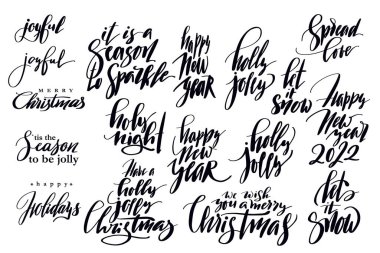 joyful
joyful
MERRY
Christmas
'tis the
Season
to be jolly
happy
Holidays
it is a
Season
to Sparkle
holy
night
Have a
holly
jolly
Christmas
happy
New
year
happy
New
year
holly
jolly
holly
jolly
we wish
you a merry
Christmas
Spread
love
let
it
snow
happy
New
year
2022
let's
it
snow